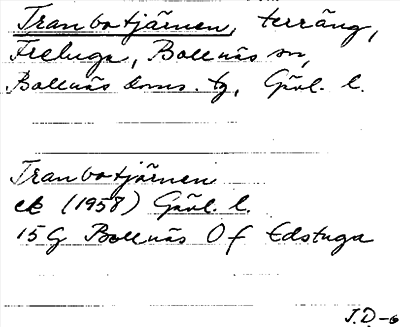 Tranbotjärnen, terräng,
Freluga, Bollnäs sn,
Bollnäs doms. tg, Gävl. l.
Tranbotjärnen
ek (1958) Gävl. l.
15G Bollnäs 0 f Edstuga
J.D-6